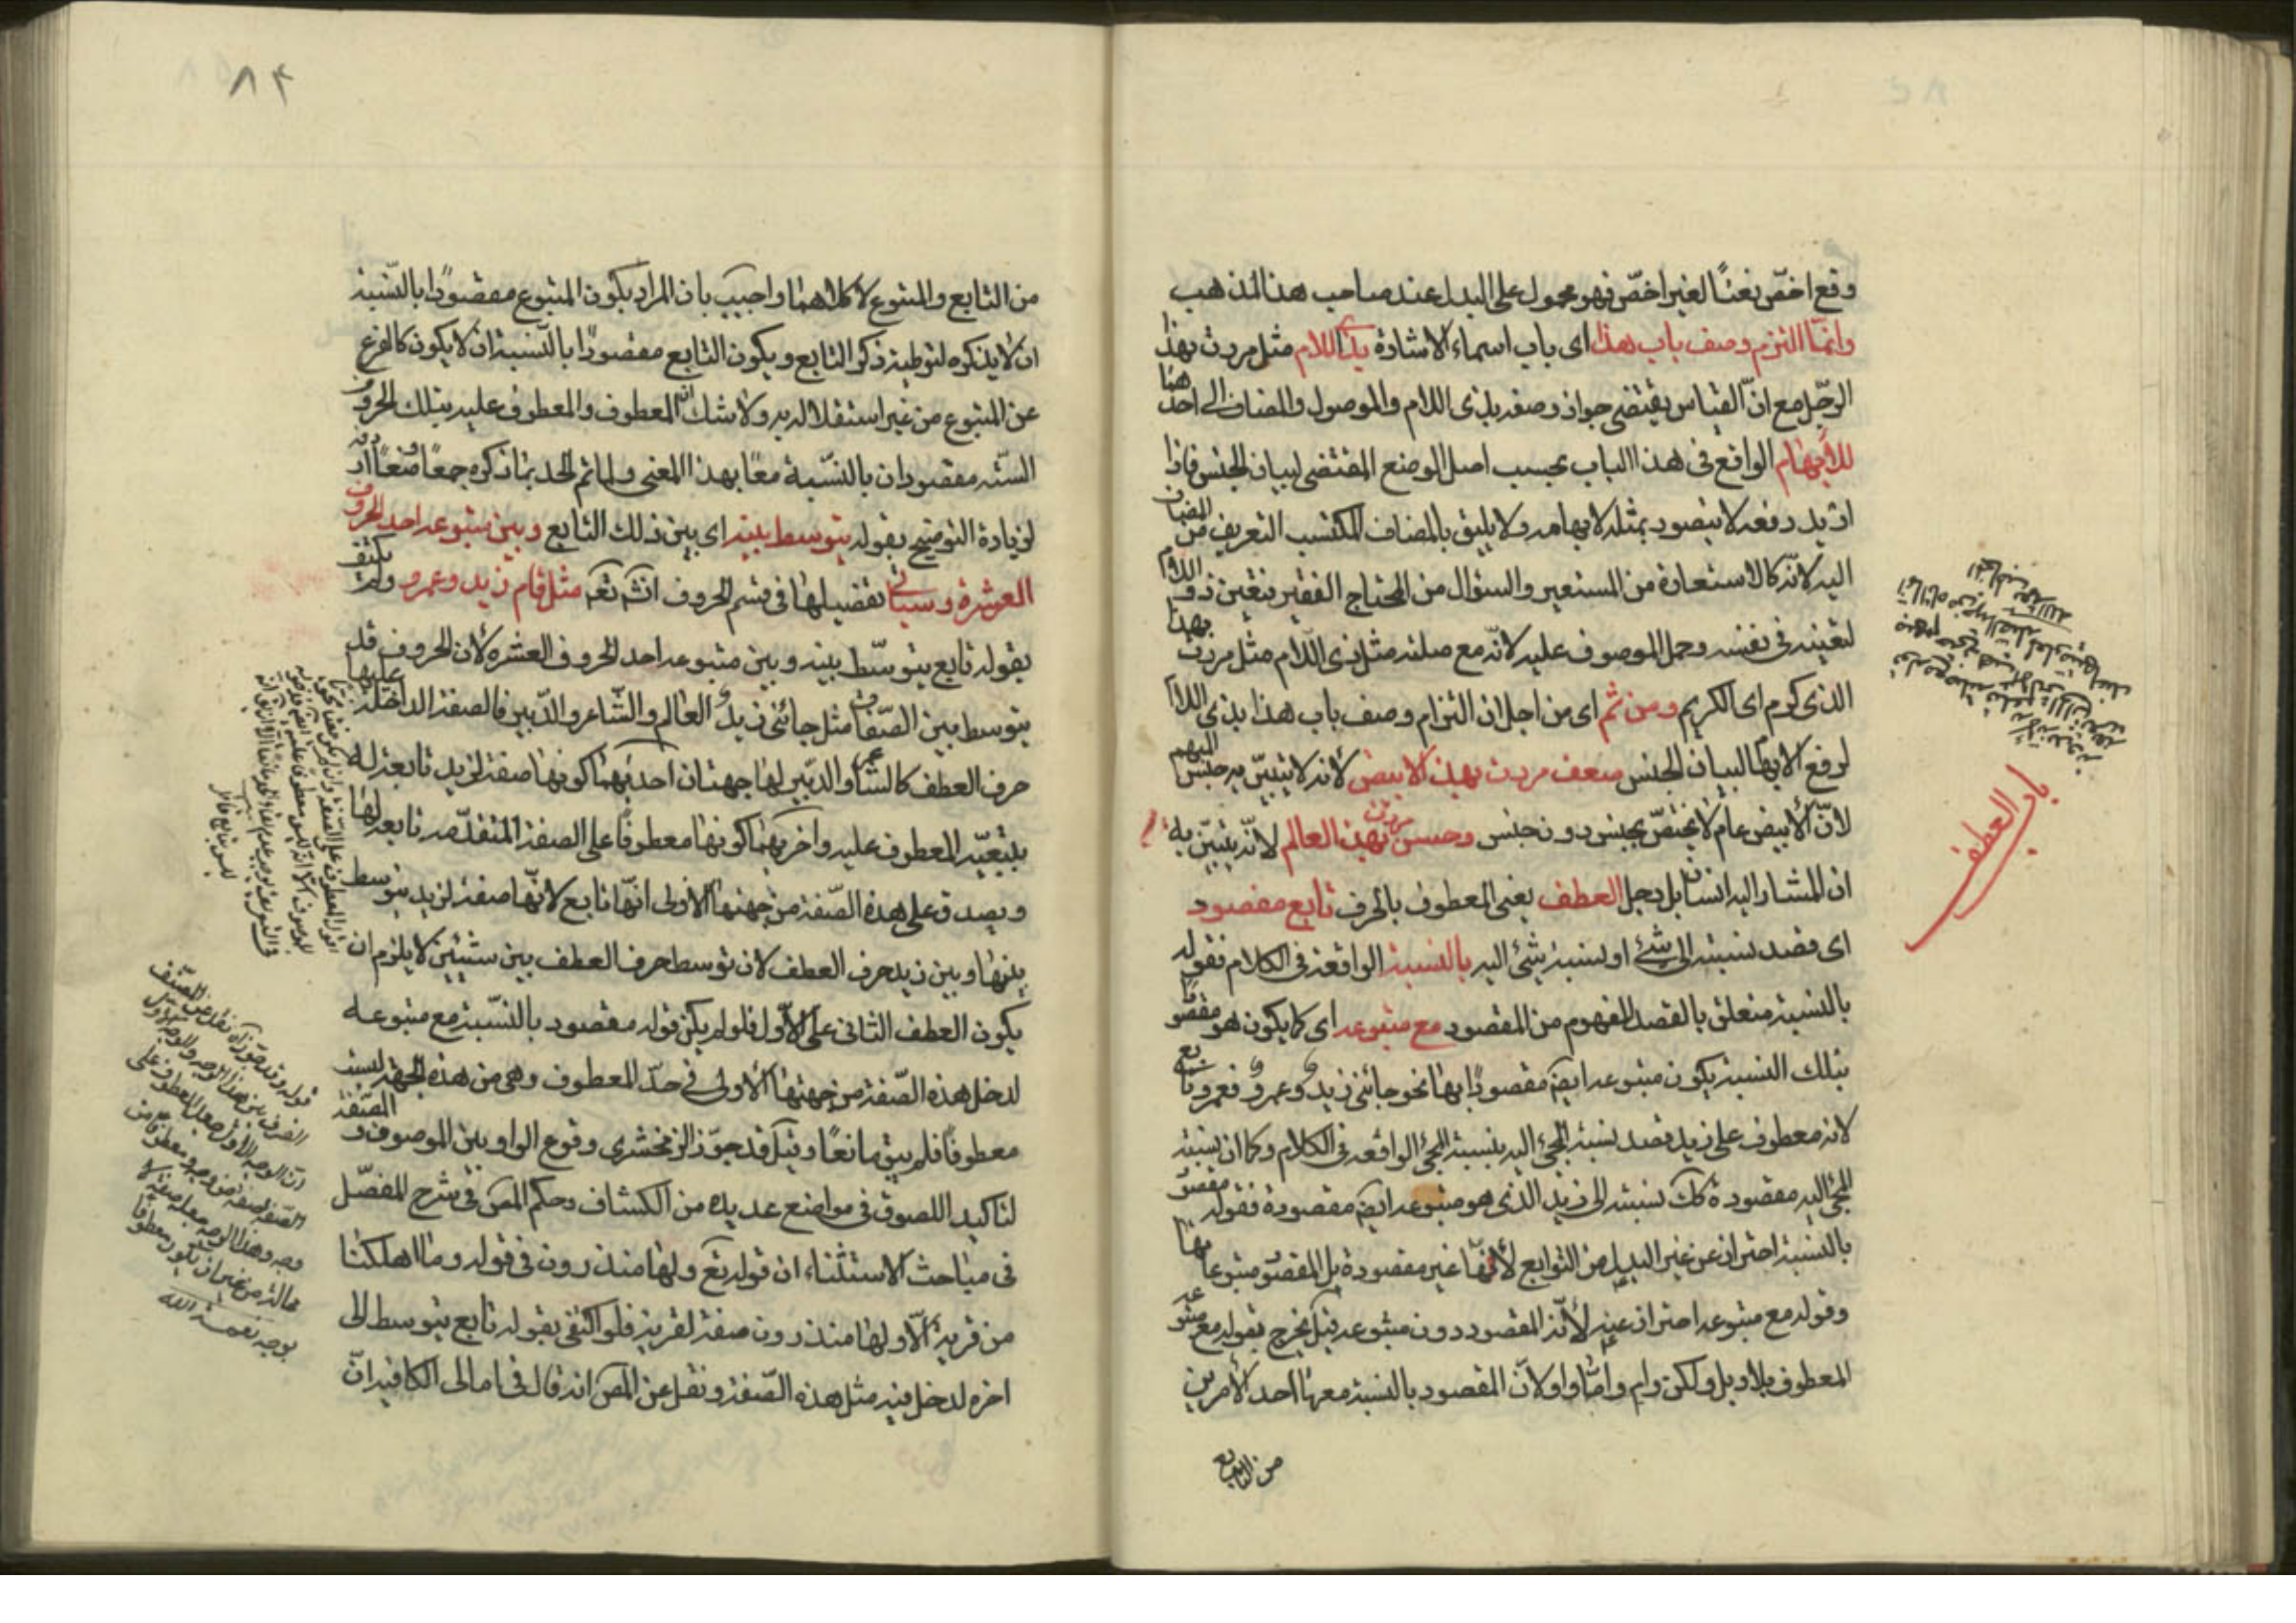 وقع اخصّ نعتًا لغير اخصّ فهو محمول على البدل عند صاحب هذا المذهب
وانّما التزم وصف باب هذا اى باب اسماء الاشارة بذى اللام مثل مررت بهذا
الرّجل مع انّ القياس يقتضى جواز وصفه بذى اللام والموصول والمضاف الى احدهما
للأبهام الواقع فى هذا الباب بحسب اصل الوضع المقتضى لبيان الجنس فاذا
اريد رفعه لا يتصور بمثله لابهامه ولا يليق بالمضاف المكتسب التعريف من المضاف
اليه لانّه كالاستعارة من المستعير والسئوال من المحتاج الفقير فتعين ذو اللام
لتعينه فى نفسه وحمل الموصوف عليه لانّه مع صلته مثل ذى اللام مثل مررت بهذا
الذى كرم اى الكريم ومن ثم اى من اجل ان التزام وصف باب هذا بذى اللام
لرفع الابهام لبيان الجنس ضعف مررت بهذا الابيض لانه لا يتبيّن به جنس المبهم
لانّ الأبيض عام لا يختصّ بجنس دون جنس وحسن مررت بهذا العالم لانّه يتبيّن به
ان المشار اليه انسان بل رجل العطف يعنى المعطوف بالحرف تابع مقصود
اى قصد نسبته الى شئ او نسبة شئ اليه بالنسبة الواقعة فى الكلام فقوله
بالنسبة متعلق بالقصد المفهوم من المقصود مع متبوعه اى كما يكون هو مقصودًا
بتلك النسبة يكون متبوعه ايضً مقصودًا بها نحو جائنى زيد وعمرو فعمرو تابع
لانه معطوف على زيد قصد نسبة المجئ اليه بنسبة المجئ الواقعة فى الكلام وكما ان نسبة
المجئ اليه مقصودة كك نسبته الى زيد الذى هو متبوعه ايضً مقصودة فقوله مقصود
بالنسبة احتراز عن غير البدل من التوابع لأنّها غير مقصودة بل المقصود متبوعاتها
وقوله مع متبوعه احتراز عنه لأنّه المقصود دون متبوعه قيل يخرج بقوله مع متبوعه
المعطوف بلا وبل ولكن وام وامّا واو لانّ المقصود بالنسبة معها احد الأمرين
من التابع
باب العطف
٨٤
من التابع والمتبوع لا كلاهما واجيب بان المراد بكون المتبوع مقصودًا بالنّسبة
ان لا يذكره لتوطية ذكر التابع وبكون التابع مقصودًا بالنّسبة ان لا يكون كالفرع
عن المتبوع من غير استقلال به ولا شك انّ المعطوف والمعطوف عليه بتلك الحروف
الستّه مقصودان بالنّسبة معًا بهذا المعنى ولما تم الحد بما ذكره جمعًا ومنعًا اردفه
لزيادة التوضيح بقوله يتوسط بينه اى بين ذلك التابع وبين متبوعه احد الحروف
العشرة وسيأتى تفصيلها فى قسم الحروف انشه تعه مثل قام زيد وعمرو ولم يكتف
بقوله تابع يتوسّط بينه وبين متبوعه احد الحروف العشرة لأن الحروف قد
يتوسط بين الصّفات مثل جائنى زيد العالم والشّاعر والدّبير فالصفة الداخلة عليها
حرف العطف كالشاعر والدبير لها جهتان احديهما كونها صفة لزيد تابعة له
بتبعيّة المعطوف عليه واخريهما كونها معطوفًا على الصفة المتقدّمة تابعة لها
ويصدق على هذه الصّفة من جهتها الأولى انّها تابع لانّها صفة لزيد يتوسط
بينها وبين زيد حرف العطف لان توسط حرف العطف بين شيئين لا يلزم ان
يكون العطف الثانى على الأوّل فلو لم يكن قوله مقصود بالنّسبة مع متبوعه
لدخل هذه الصّفة من جهتها الأولى فى حدّ المعطوف وهى من هذه الجهة ليست
معطوفًا فلم يبق مانعًا وقيل قد جوّز الزمخشرى وقوع الواو بين الموصوف والصّفة
لتاكيد اللصوق فى مواضع عديدة من الكشاف وحكم المص فى شرح المفصّل
فى مباحث الاستثناء ان قوله تع ولها منذرون فى قوله وما اهلكنا
من قرية الّا ولها منذرون صفة لقرية فلو اكتفى بقوله تابع يتوسط الى
اخره لدخل فيه مثل هذه الصّفة ونقل عن المص انه قال فى امالى الكافيه انّ